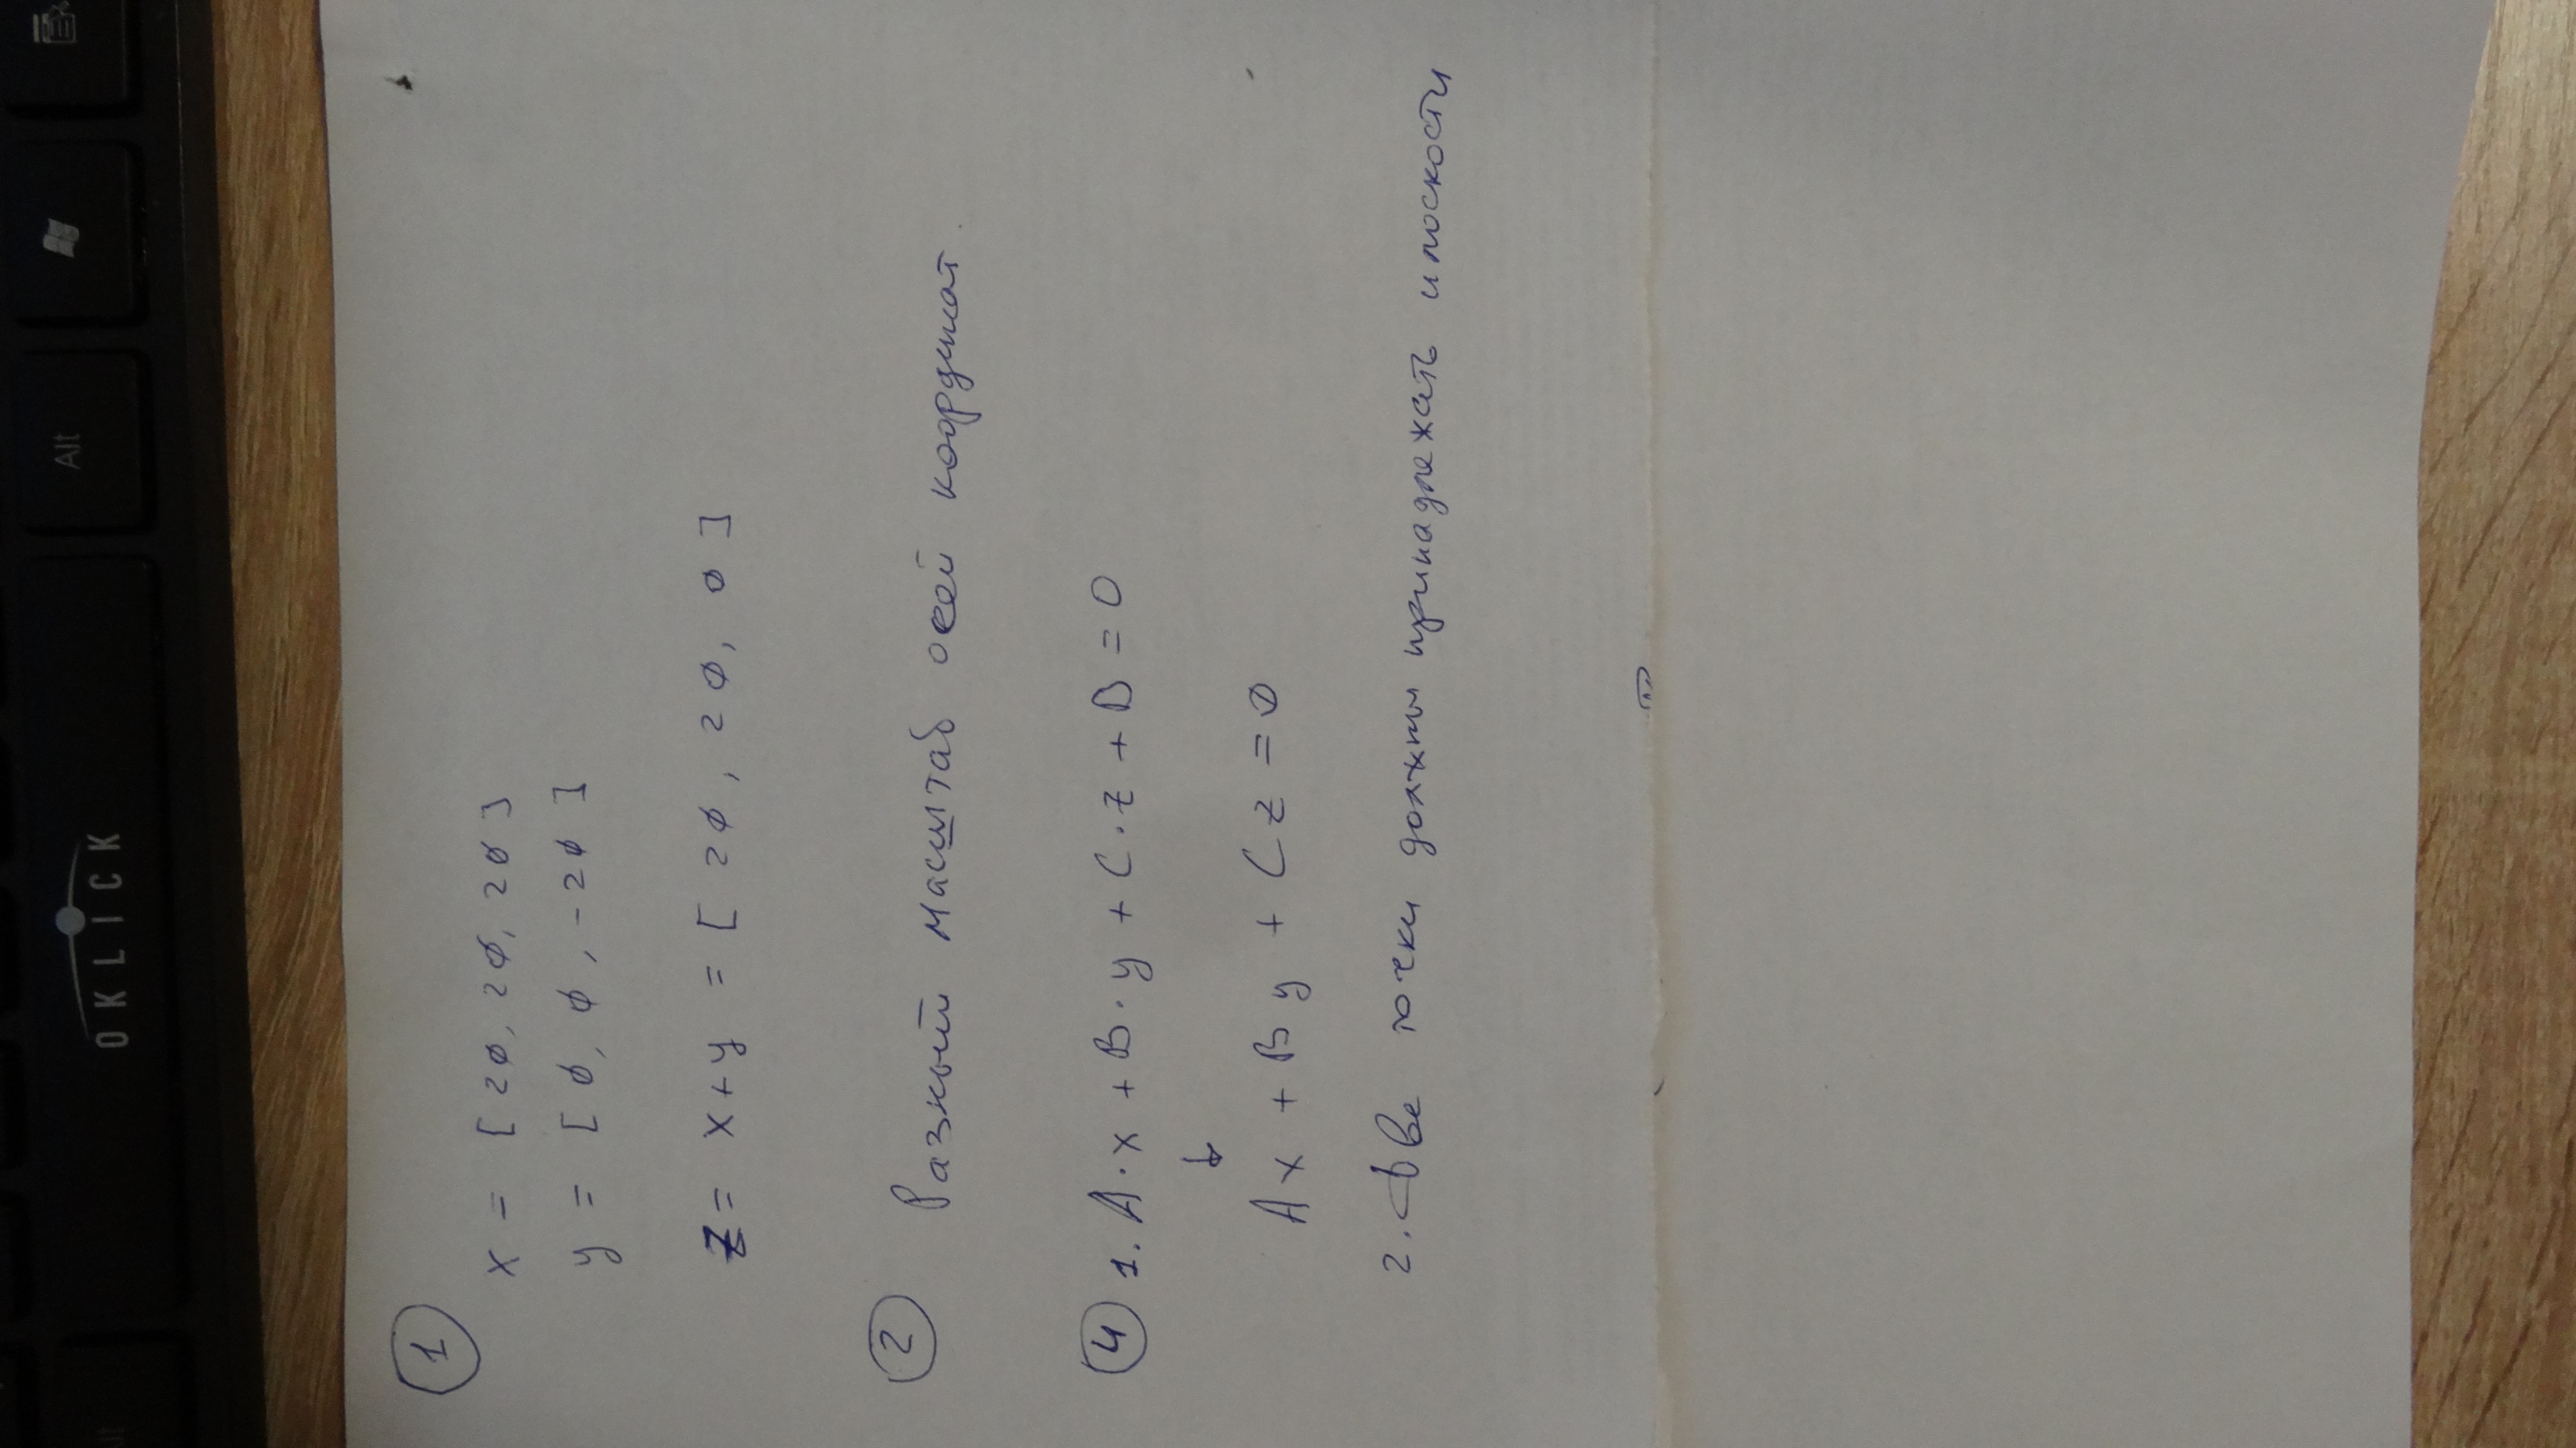 OKLICK
Alt
1
x = [20, 20, 20]
y = [0, 0, -20]
z = x + y = [20, 20, 0]
2 Разный масштаб осей координат.
4 1. A·x + B·y + C·z + D = 0
↓
Ax + By + Cz = 0
2. Две точки должны принадлежать плоскости